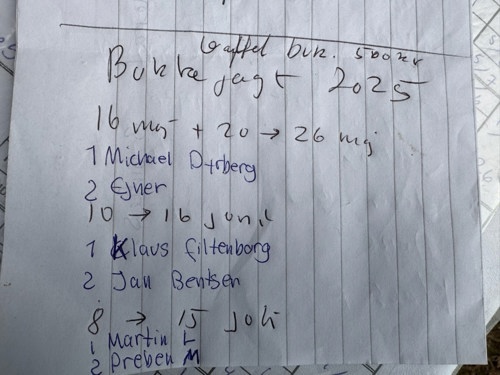 Gaffel buk. 500 kr
Bukke jagt 2025
16 maj + 20 → 26 maj
1 Michael Dyrberg
2 Ejner
10 → 16 juni
1 Klaus Eiltenborg
2 Jan Bentsen
8 → 15 juli
1 Martin L
2 Preben M